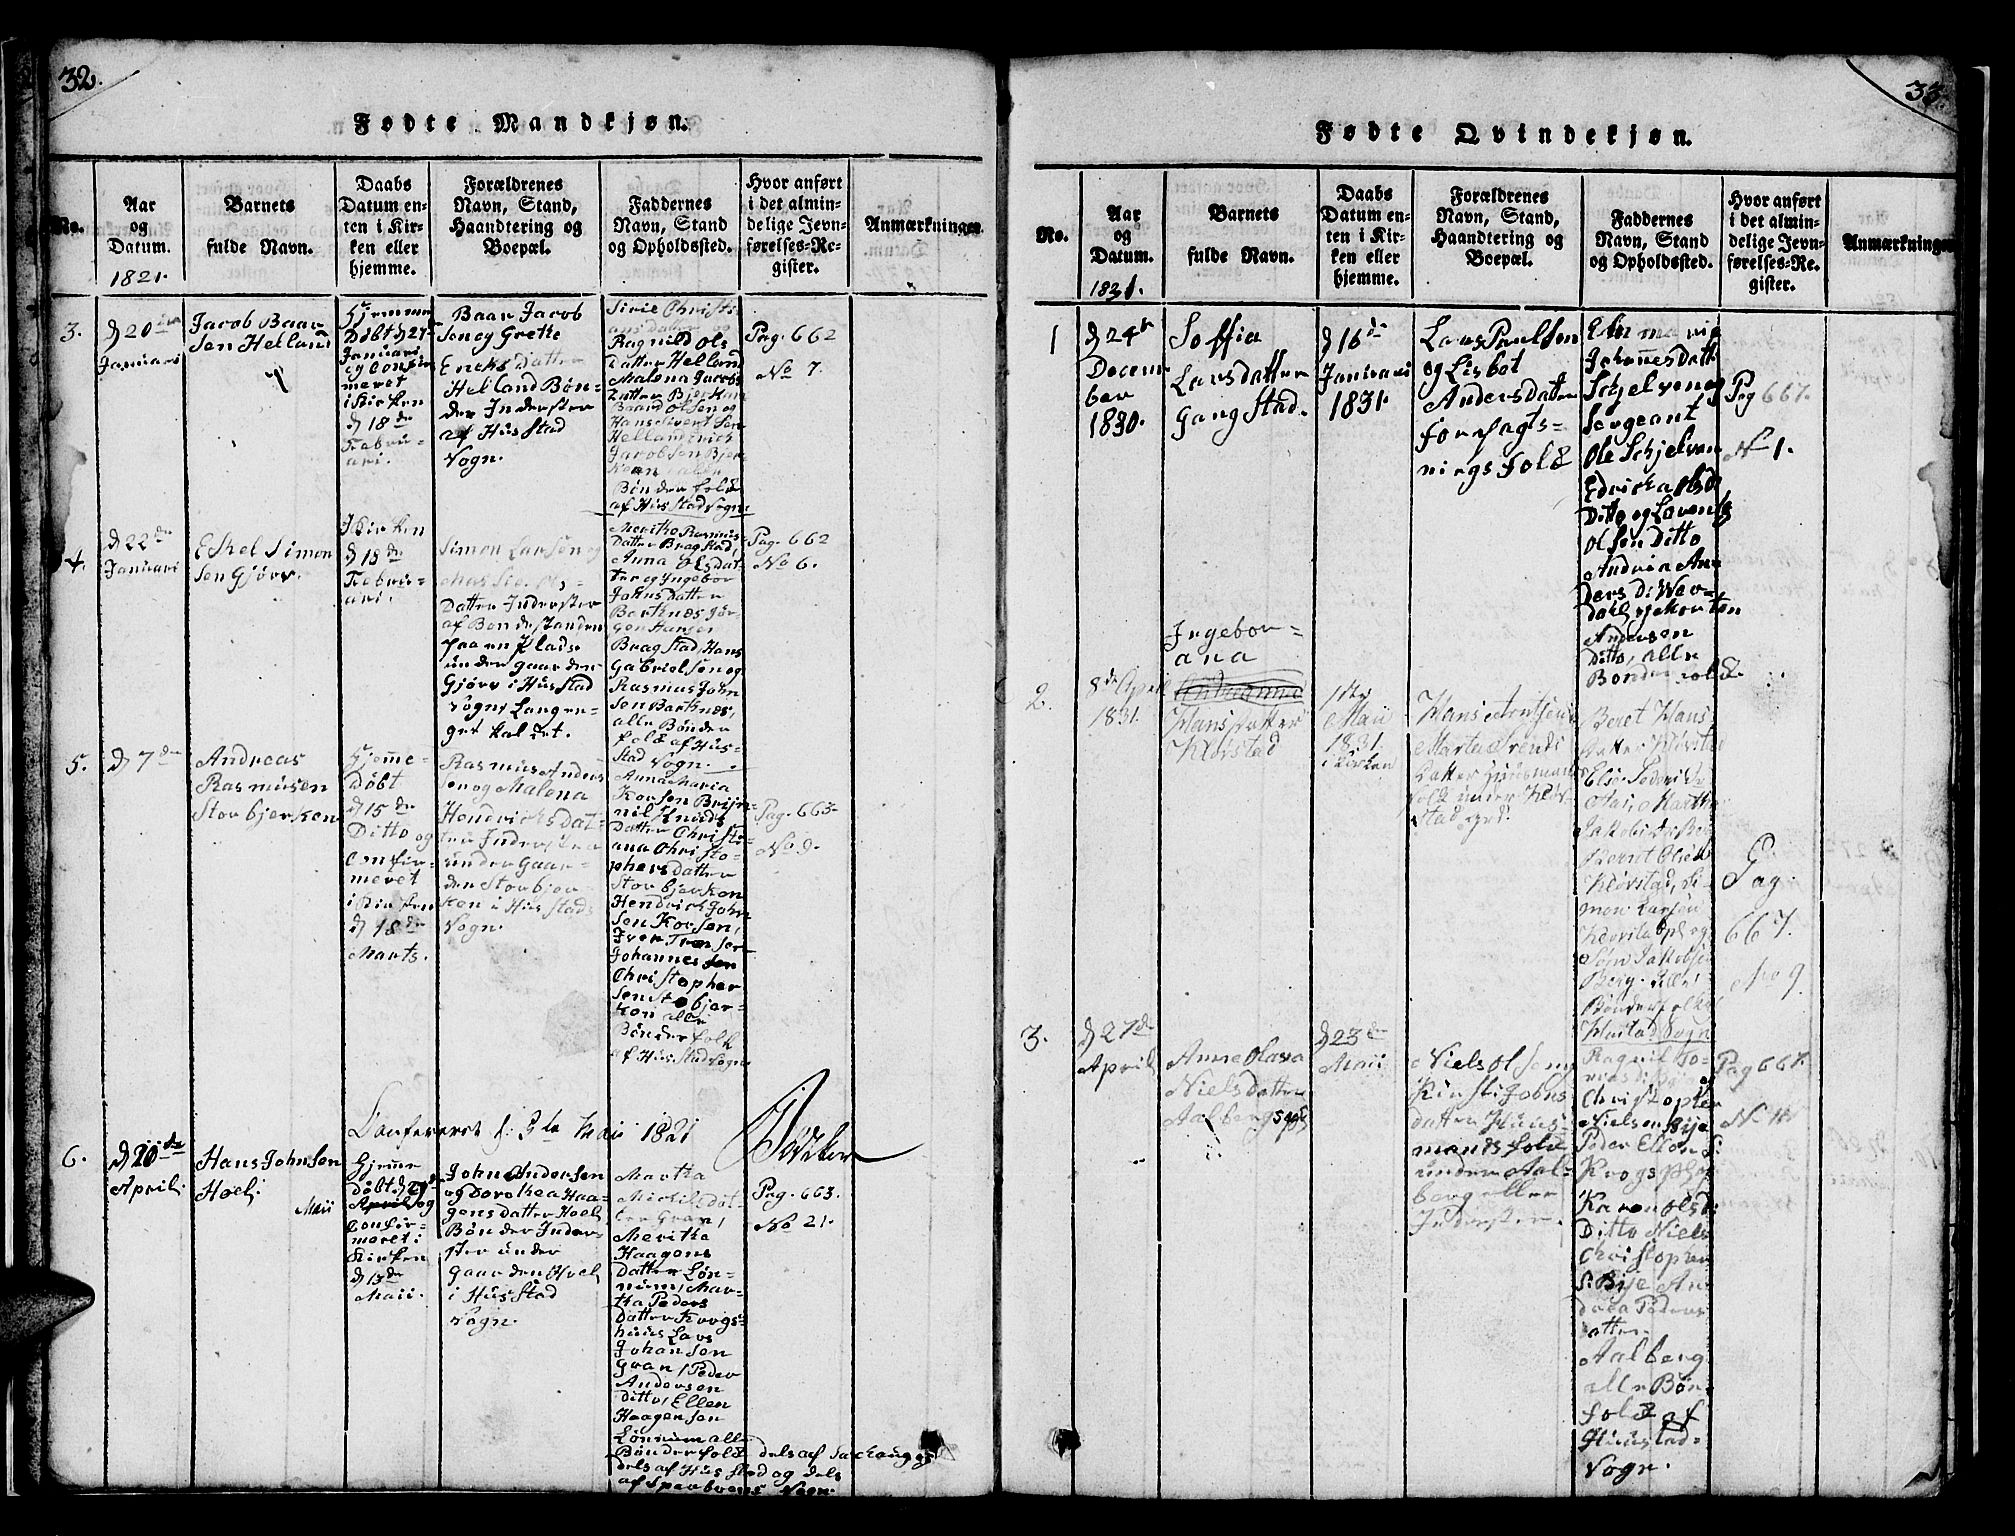 32.
Fødte Mandkjøn.
No.
Aar
og
Datum.
1821.
Barnets
fulde Navn.
Daabs
Datum en-
ten i Kir-
ken eller
hjemme.
Forældrenes
Navn, Stand,
Haandtering og
Boepæl.
Faddernes
Navn, Stand
og Opholdssted.
Hvor anført
i det almin-
delige Jevn-
førelses-Re-
gister.
Anmærkninger.
3.
d 20de
Januari
Jacob Baar
Sen Helland
Hjemme
Døbt d 21
Januari
og confir
meret
i Kirken
d 18de
Februi-
ari.
Baar Jacob
Sen og Grethe
Erichsdatter
Helland Bøn-
der Inderster
af Husstad
Sogn.
Sirie Christi
ansdatter og
Ragnild Ols
Datter Helland
Malena Jacobs
Datter Bjerkan
Baard Olsen og
Hans Sivert Sen
Helland Erich
Jacobsen Bjer
Kan alle
Bønderfolk
af Husstad Sogn
Pag. 662
No 7.
4.
d 22de
Januari
Eskel Simon
Sen Gjørv.
I Kirken
d 18de
Februi-
ari.
Simon Larsen og
Datter Inderster
af Bondestanden
paa en Plads
under Gaarden
Gjørv i Husstad
Sogn, Langen-
get kaldet.
Merithe Rasmus
Datter Bragstad,
Anna Olsdat-
ter og Ingebor
Johns datter
Barknes Jør-
gen Hansen
Bragstad, Hans
Gabrielsen og
Rasmus John
Sen Barknes,
alle Bønder
folk af Hus-
stad Sogn.
Pag. 662
No 6.
5.
d 7de
Andreas
Rasmusen
Storbjerken
Hjemme-
Døbt
d 15de
Ditto og
confir-
meret
i Kirken
d 18de
Marts.
Rasmus Anders
Sen og Malena
Hendricksdat-
ter Indersten
under Gaar-
den Storbjer-
ken i Husstad
Sogn.
Anna Maria
Korsen Brijn-
nil Knuds
Datter Christi
ana Christo-
phersdatter
Storbjerken
Hendrich John
Sen Korsen,
Iver Tronsen
Johannes Sen
Christopher
Sen Stobjer-
ken alle
Bønderfolk
af Husstad Sogn
Pag. 663
No 9.
Confereret d: 3te Maii 1821
6.
d 20de
April
Hans Johnsen
Hoel.
Maii
Hjeme
døbt d 29de
April og
confir-
meret i
Kirken
d 13de
Maii.
John Andersen
og Dorothea Haa-
gensdatter Hoel
Bønder Inder-
ster under
Gaarden Hoel
i Husstad
Sogn.
Martha
Michelsdat-
ter Gran,
Merithe
Haagens
Datter Løn-
num, Mar-
tha Peders
Datter Krogs-
huus Lars
Johansen
Gran, Peder
Andersen
Ditto, Ellen
Haagensen
Lønnum alle
Bønderfolk dels af Sackoug og
dels af Husstad og dels
af Sparboens Sogn.
Pag. 663.
No 21.
33.
Fødte Qvindekjøn.
No.
Aar
og
Datum.
1831.
Barnets
fulde Navn.
Daabs
Datum en-
ten i Kir-
ken eller
hjemme.
Forældrenes
Navn, Stand,
Haandtering og
Boepæl.
Faddernes
Navn, Stand
og Opholdssted.
Hvor anført
i det almin-
delige Jevn-
førelses-Re-
gister.
Anmærkninger
1
d 24de
Decem
ber
1830.
Soffia
Larsdatter
Gangstad.
d 16de
Januari
1831.
Lars Paulsen
og Lisbet
Andersdatter
Forpagt-
nings folk
Johannesdatt.
Schjelven og
Sergeant
Ole Schjelven
Ditto og Lorents
Olsen Ditto
Andrea An-
ders D: Wer-
dahl og Morten
Andersen
Ditto, alle
Bonderfolk.
Pag 667.
No 1.
2.
8de April
1831.
Ingebor-
ana
Hansdatter
Kløvstad
1ste
Maii
1831.
i Kirken
Hans Arntsen
Marta Arends
Datter Huusmand
folk under Kløv-
stad
Beret Hans
datter Kløvstad
Kløvstad, Si-
mon Larsen
Berg. alle
Bønderfolk
Hustad Sogn
Pag.
667.
No 9.
3.
d 27de
April
Anne Olava
Nielsdatter
Aalbergs
d 23de
Maii
Niels Olsen
Kirsti Johns
datter Huus-
mands folk
under Aal-
berg eller
Inderster.
Ragnil To-
Christopher
Nielsen Bije
Peder Ellon S:
Karen Olsd:
Ditto Niels
Christopher
S: Bije An
dera Peders
datter
Aalberg
alle Bøn-
folk af
Huustad
Sogn.
Pag 668.